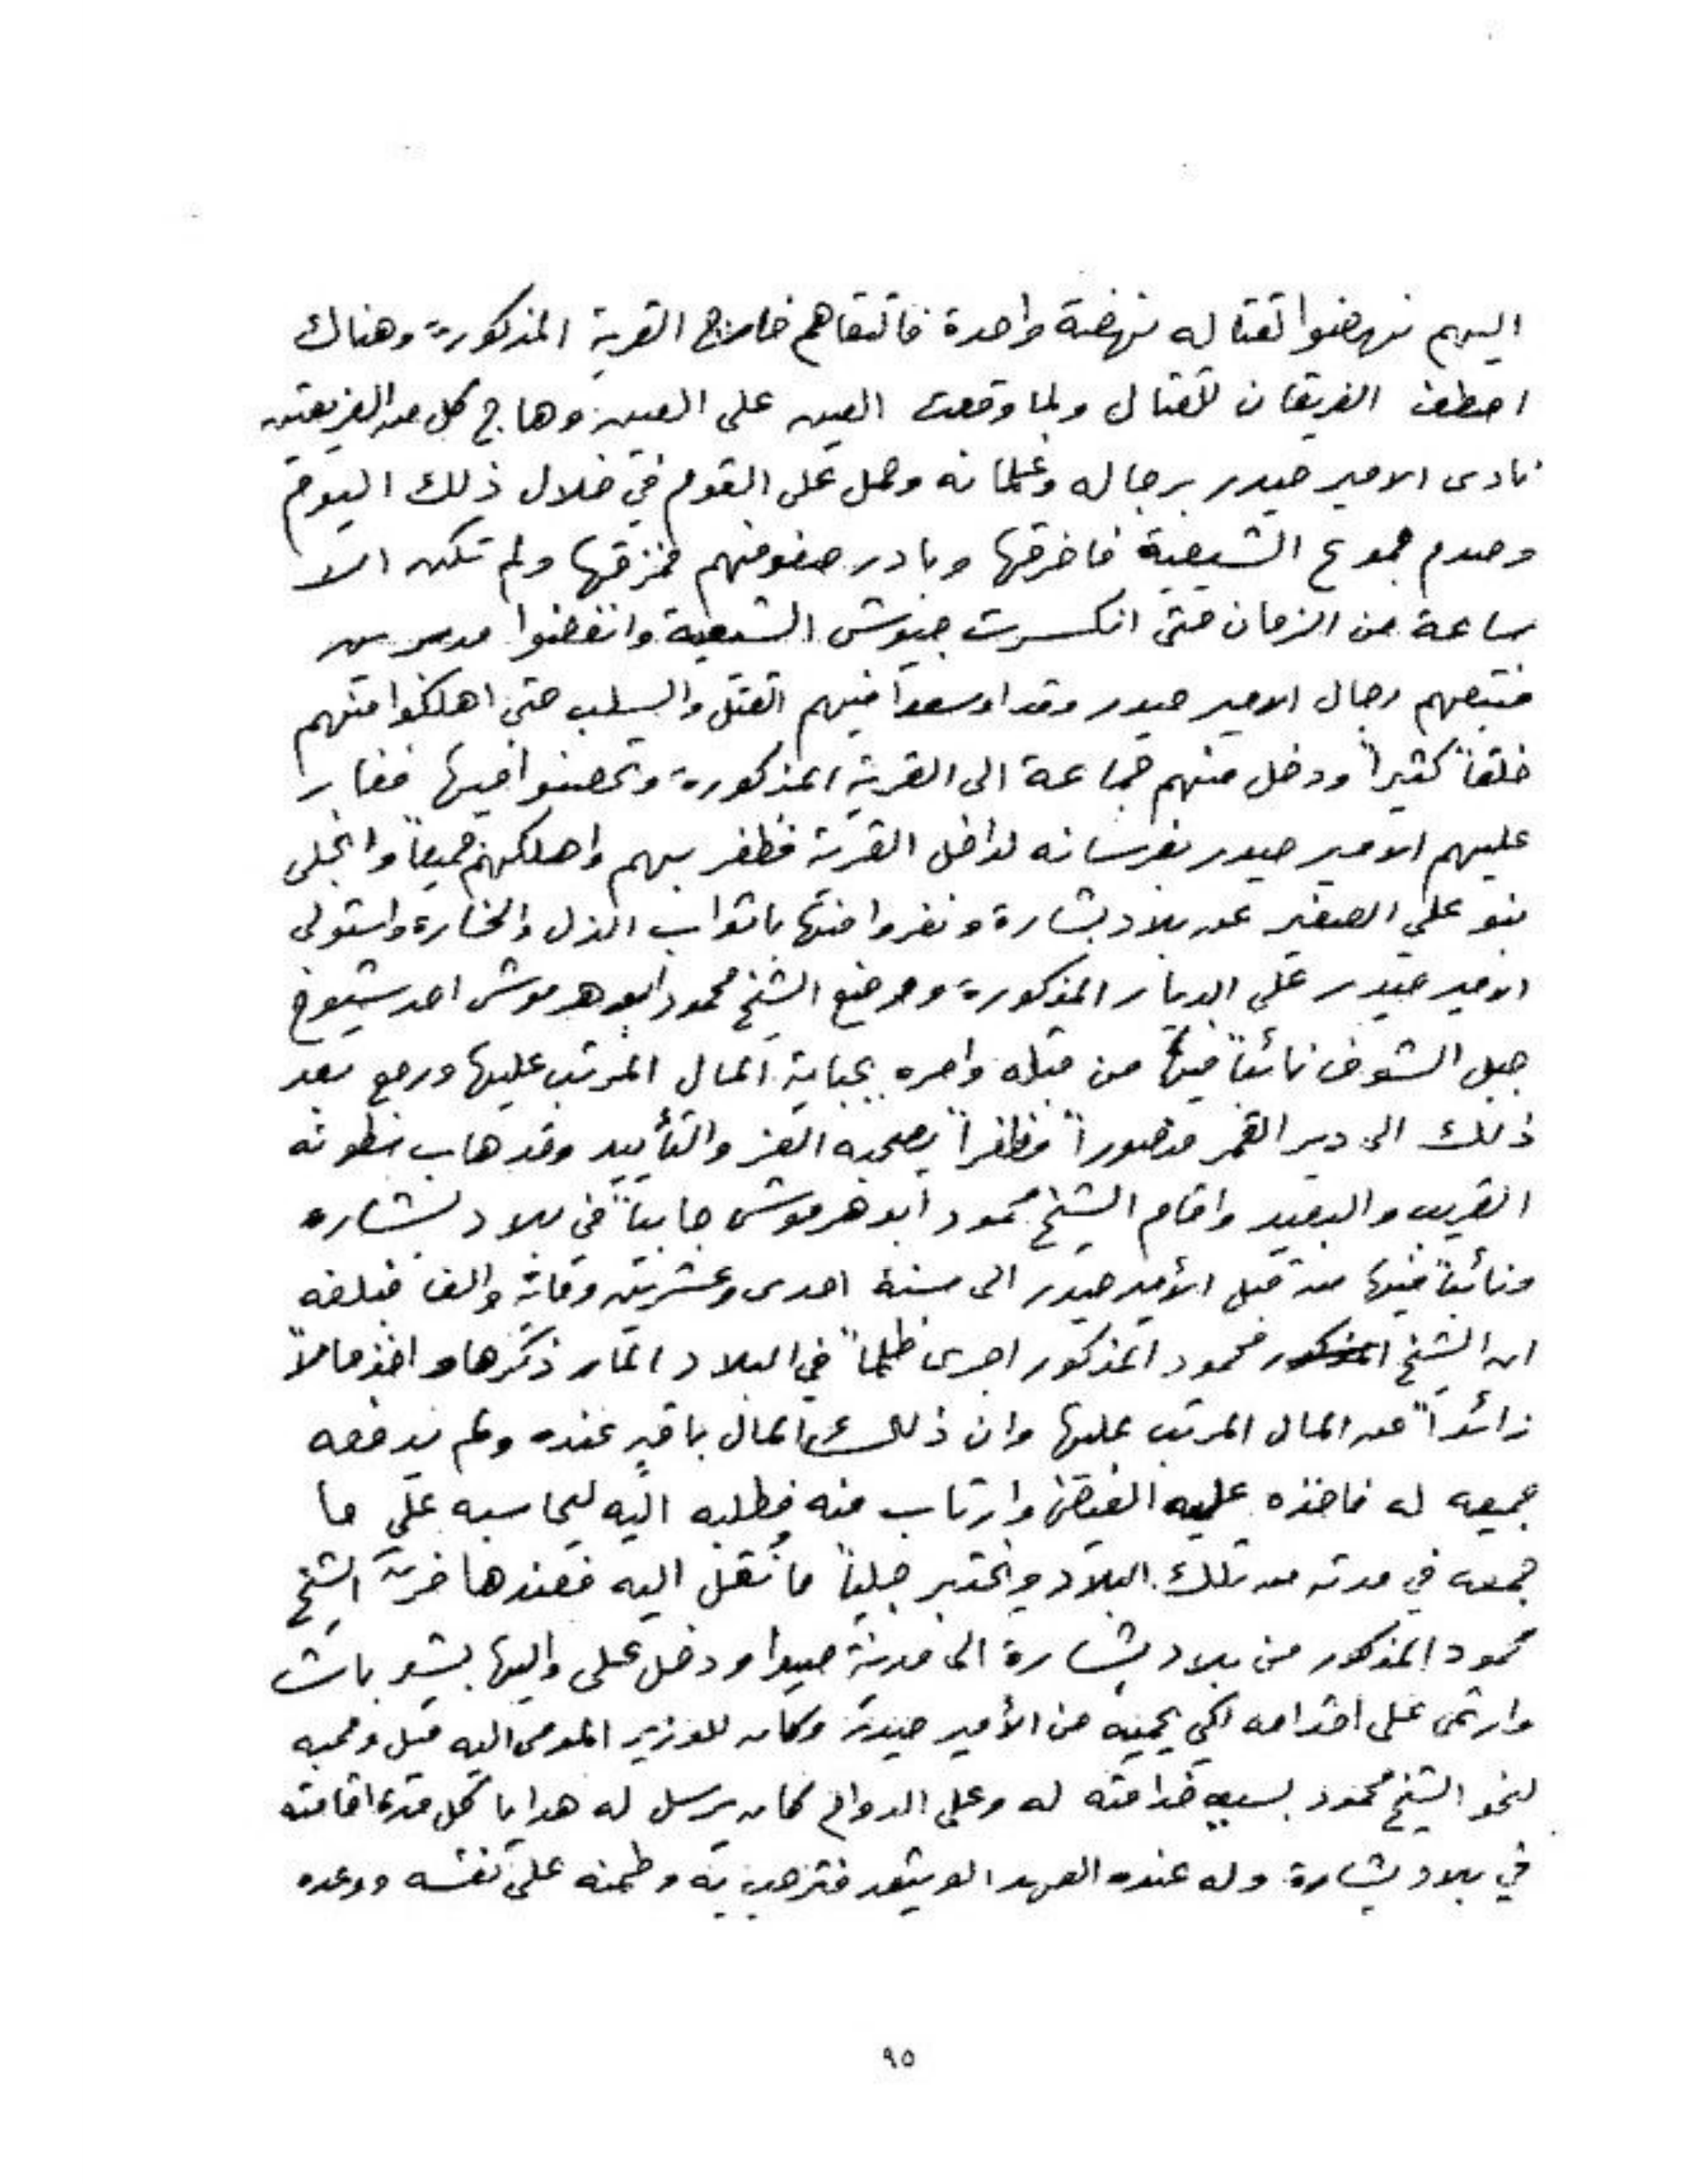 اليهم نهضوا لقتاله نهضة واحدة فالتقاهم خارج القرية المذكورة وهناك
اصطف الفريقان للقتال ولما وقعت العين على العين وهاج كل من الفريقين
نادى الامير حيدر برجاله وغلمانه وحمل على القوم في خلال ذلك اليوم
وصدم جموع الشيعية فاخرقها وبادر صفوفهم فمزقها ولم تكن الا
ساعة من الزمان حتى انكسرت جيوش الشيعية وانفضوا مدبرين
فتبعهم رجال الامير حيدر وقد اوسعوا فيهم القتل والسلب حتى اهلكوا منهم
خلقاً كثيراً ودخل منهم جماعة الى القرية المذكورة وتحصنوا فيها فغار
عليهم الامير حيدر بفرسانه لداخل القرية فظفر بهم واهلكهم جميعاً وانجلى
بنو علي الصغير عن بلاد بشارة ونفروا منها باثواب الذل والخسارة واستولى
الامير حيدر على الديار المذكورة ووضع الشيخ محمود ابو هرموش احد شيوخ
جبل الشوف نائباً فيها من قبله وامره بجباية المال المرتب عليها ورجع بعد
ذلك الى دير القمر منصوراً مظفراً يصحبه العز والتأييد وقد هاب سطوته
القريب والبعيد واقام الشيخ محمود ابو هرموش جابياً في بلاد بشاره
ونائباً فيها من قبل الأمير حيدر الى سنة احدى وعشرين وماية والف فبلغه
ان الشيخ المذكور محمود المذكور اجرى ظلماً في البلاد المار ذكرها واخذ مالاً
زائداً عن المال المرتب عليها وان ذلك المال باقٍ عنده ولم يدفعه
جميعه له فاخذه عليه الغيظ وارتاب منه فطلبه اليه ليحاسبه على ما
جمعه في مدته من تلك البلاد ويختبر جلياً ما نُقل اليه فعندها فرّ الشيخ
محمود المذكور من بلاد بشارة الى مدينة صيدا ودخل على واليها بشير باشا
وارتمى على اقدامه لكي يحميه من الأمير حيدر وكان للوزير المومى اليه ميل ومحبه
لنحو الشيخ محمود بسبب خدامته له وعلى الدوام كان يرسل له هدايا كل مدة اقامته
في بلاد بشارة وله عنده العهد الوثيق فترحب به وطمنه على نفسه ووعده
٩٥